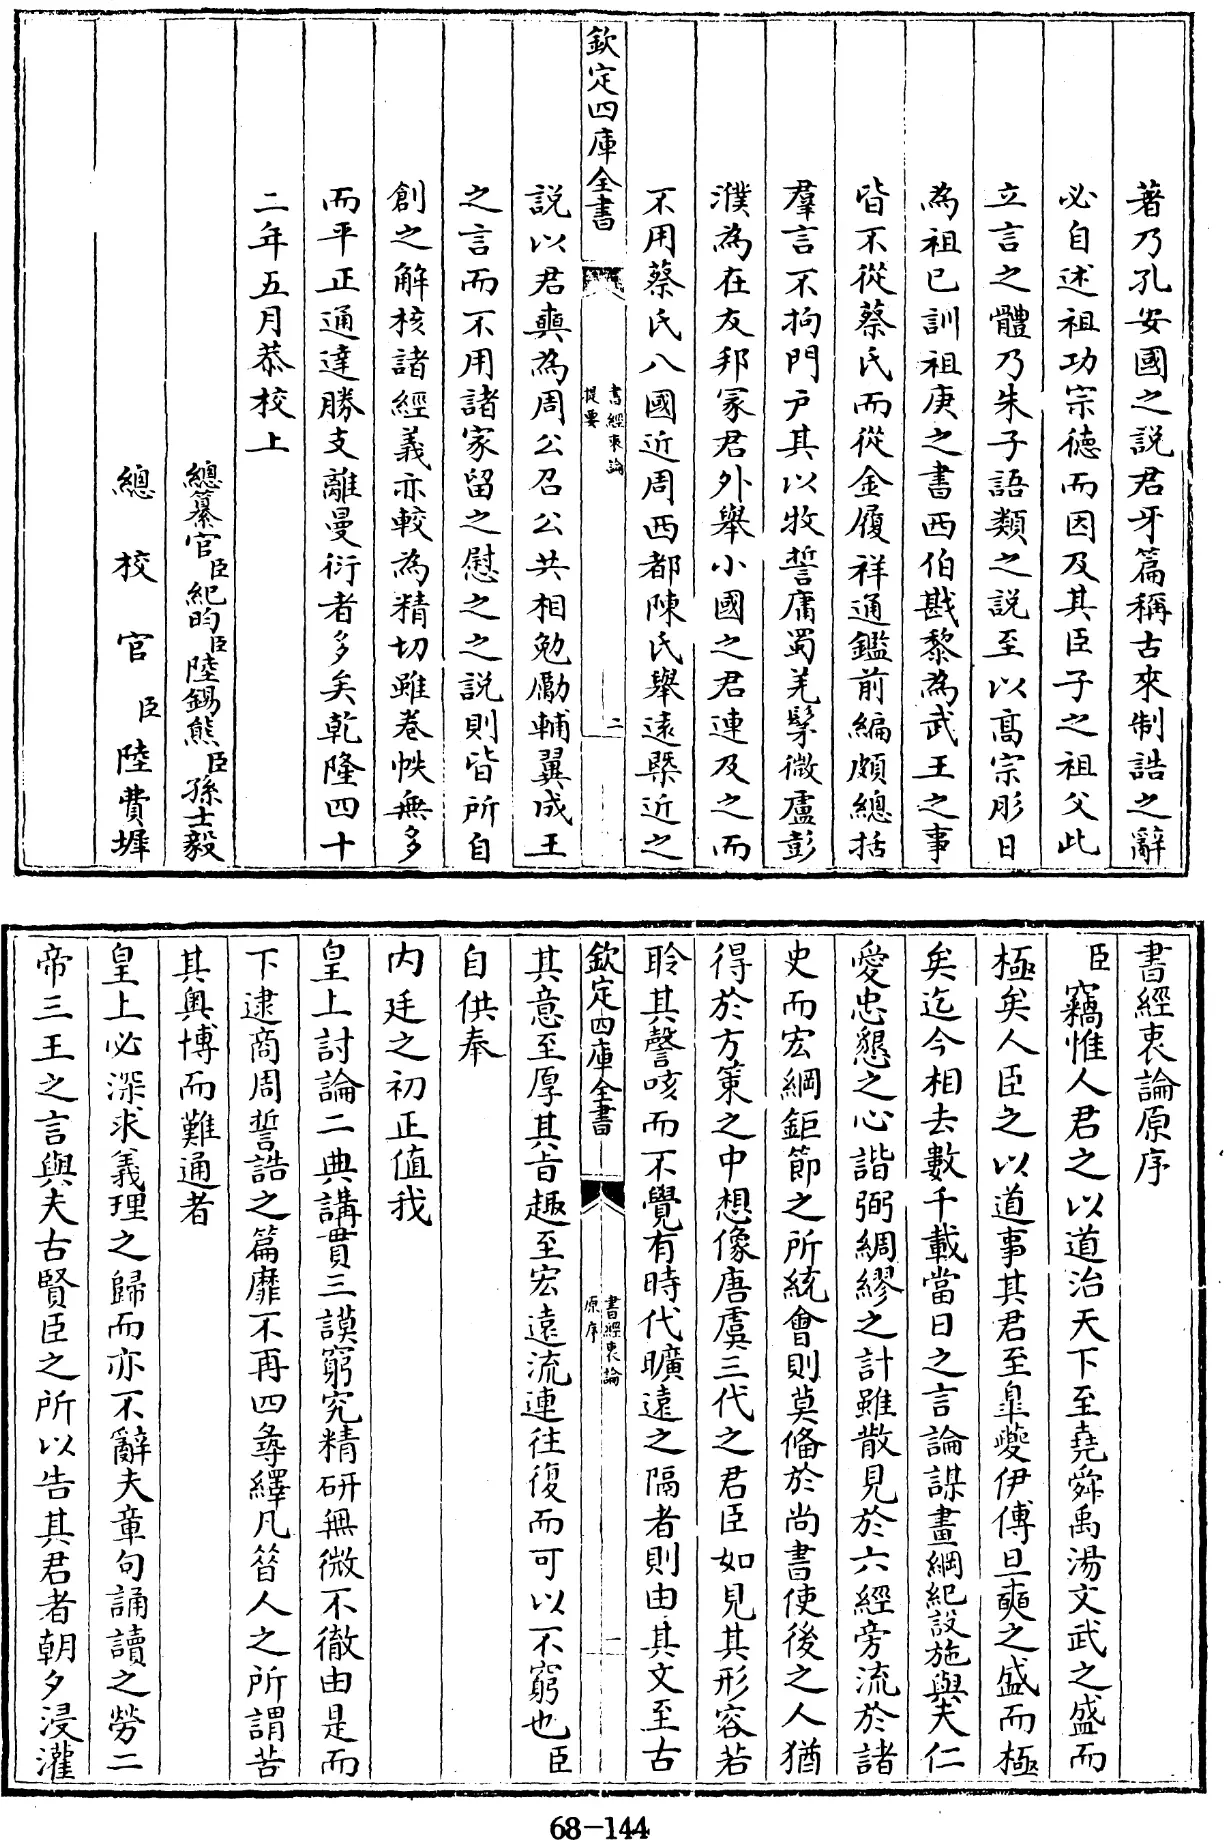 著乃孔安國之説君牙篇稱古來制誥之辭
必自述祖功宗德而因及其臣子之祖父此
立言之體乃朱子語類之説至以髙宗肜日
為祖已訓祖庚之書西伯戡黎為武王之事
皆不從蔡氏而從金履祥通鑑前編頗總括
羣言不拘門戸其以牧誓庸蜀羌髳微盧彭
濮為在友邦冡君外舉小國之君連及之而
不用蔡氏八國近周西都陳氏舉逺槩近之
欽定四庫全書
書經衷論
提要
二
説以君奭為周公召公共相勉勵輔翼成王
之言而不用諸家留之慰之之説則皆所自
創之解核諸經義亦較為精切雖巻帙無多
而平正通達勝支離曼衍者多矣乾隆四十
二年五月恭校上
總纂官臣紀昀臣陸錫熊臣孫士毅
總校官臣陸費墀
書經衷論原序
臣竊惟人君之以道治天下至堯舜禹湯文武之盛而
極矣人臣之以道事其君至臯夔伊傅旦奭之盛而極
矣迄今相去數千載當日之言論謀畫綱紀設施與夫仁
愛忠懇之心諧弼綢繆之計雖散見於六經旁流於諸
史而宏綱鉅節之所統會則莫備於尚書使後之人猶
得於方䇿之中想像唐虞三代之君臣如見其形容若
聆其謦咳而不覺有時代曠逺之隔者則由其文至古
欽定四庫全書
書經衷論
原序
一
其意至厚其㫖趣至宏逺流連往復而可以不窮也臣
自供奉
内廷之初正值我
皇上討論二典講貫三謨窮究精研無微不徹由是而
下逮商周誓誥之篇靡不再四㝷繹凡昔人之所謂苦
其奥博而難通者
皇上必深求義理之歸而亦不辭夫章句誦讀之勞二
帝三王之言與夫古賢臣之所以告其君者朝夕浸灌
68-144